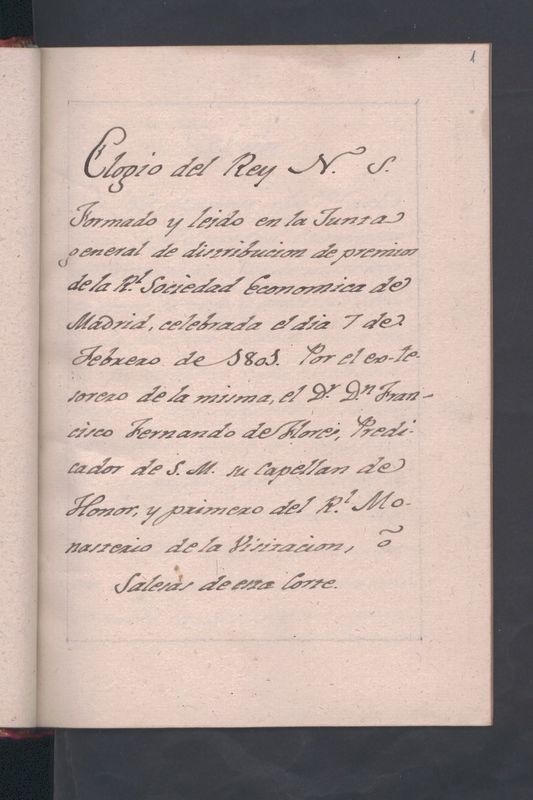 1
Elogio del Rey N. S.
Formado y leido en la Junta
general de distribucion de premios
de la Rl. Sociedad Economica de
Madrid, celebrada el dia 7 de
Febrero de 1801. Por el ex-te-
sorero de la misma, el Dr. Dn Fran-
cisco Fernando de Flores, Predi-
cador de S. M. su Capellan de
Honor, y primero del Rl. Mo-
nasterio de la Visitacion, õ
Salesas de esta Corte.